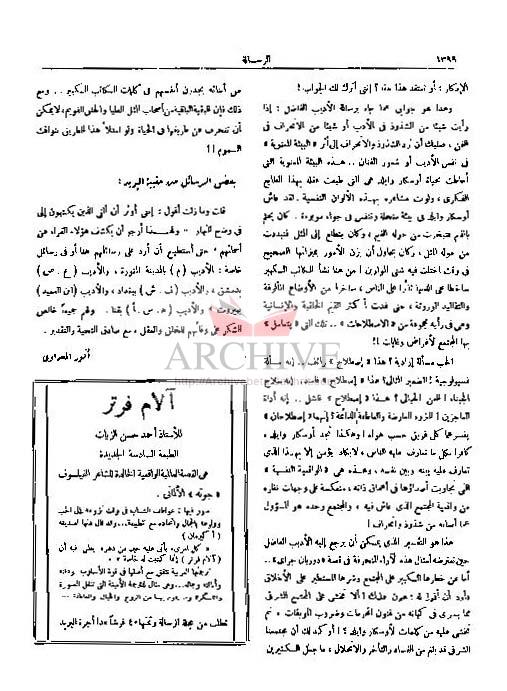 ١٣٩٩
الرسالة
الأفكار ؛ أو تعتقد هذا حقا ؟ إننى أترك لك الجواب !
وهذا هو جوابى عما جاء برسالة الأديب الفاضل : إذا
رأيت شيئا من الشذوذ فى الأدب أو شيئا من الانحراف فى
الفن ، فعليك أن ترد الشذوذ والانحراف إلى أثر « البيئة المعنوية »
فى نفس الأديب أو شعور الفنان .. هذه البيئة المعنوية التى
أحاطت بحياة أوسكار وايلد هى التى طبعت عقله بهذا الطابع
الفكرى ، ولونت مشاعره بهذه الألوان النفسية . لقد عاش
أوسكار وايلد فى بيئة منحلة وتنفس فى جواء موبوءة . كان يحلم
بالقيم فتبخرت من حوله القيم ، وكان يتطلع إلى المثل فتبددت
من حوله المثل ، وكان يحاول أن يزن الأمور بميزانها الصحيح
فى وقت اختلت فيه شتى الموازين ! من هنا نشأ الكاتب الكبير
ساخطا على الدنيا ثائرا على الناس ، ساخرا من الأوضاع المألوفة
والتقاليد الموروثة ، حتى غدت أكثر القيم الخلقية والإنسانية
وهى فى رأيه مجموعة من « الاصطلاحات » .. تلك التى « يتعامل »
بها المجتمع لأغراض وغايات !!
الحب مسألة إرادية ؟ هذا « إصطلاح » زائف .. إنه مسألة
فسيولوجية ! الضمير المثالى ؟ هذا « إصطلاح » فاسد .. إنه سلاح
الجبناء ! للفن الحيائى ؟ هذا « إصطلاح » فاشل .. إنه أداة
العاجزين ! للنزوة العارضة والعاطفة الدائمة ؟ إنهما « إصطلاحان »
يفسرهما كل فريق حسب هواه ! وهكذا تجد أوسكار وايلد ،
كافرا بكل ما تعارف عليه الناس ، لا يكاد يؤمن إلا بهذا الذى
تعارف عليه بينه وبين نفسه ، وهذه هى « الواقعية النفسية »
التى تجاوبت أصداؤها فى أعماق ذاته ، منعكسة على وجهات نظره
من واقعية المجتمع الذى عاش فيه ، والمجتمع وحده هو المسؤول
عما أصابه من شذوذ وانحراف !
هذا هو التفسير الذى يمكن أن يرجع إليه الأديب الفاضل
حين تعترضه أمثال هذه الآراء المنحرفة فى قصة « دوريان جراى » ..
أما عن خطرها الكبير على المجتمع وشرها المستطير على الأخلاق
فأود أن أقول له : هون عليك ! ألا تخشى على المجتمع الشرقى
مما يسرى فى كيانه من فنون المحرمات وضروب الموبقات ثم
تخشى عليه من كلمات لأوسكار وايلد ؟ ! أؤكد لك أن مجتمعنا
الشرقى قد بلغ من الفساد والتأخر والانحلال ، ما جعل الكثيرين
من أبنائه يجدون أنفسهم فى كتابات الكاتب الكبير .. ومع
ذلك فإن البقية الباقية من أصحاب المثل العليا والخلق القويم ، لا يمكن
أن تنحرف عن طريقها فى الحياة ولو امتلأ هذا الطريق بنوافث
السموم !!
بعض الرسائل من حقيبة البريد :
قلت وما زلت أقول : إننى أوثر أن ألقى الذين يكتبون إلى
فى وضح النهار .. ولهذا أرجو أن يكشف هؤلاء القراء عن
أسمائهم ، حتى أستطيع أن أرد على رسائلهم هنا أو فى رسائل
خاصة : الأديب ( م ) بالمدينة المنورة ، والأديب ( ع . ص )
بدمشق ، والأديب ( ف . ش ) ببغداد ، والأديب ( ابن الصعيد )
ببيروت ، والأديب ( ھ . س . أ ) بقنا . ولهم جميعا خالص
الشكر على وفائهم للخلق والعقل ، مع صادق التحية والتقدير .
أنور المعداوى
آلام فرتر
للأستاذ أحمد حسن الزيات
الطبعة السادسة الجديدة
هى القصة العالمية الواقعية الخالدة للشاعر الفيلسوف
« جوته » الألمانى .
صور فيها : عواطف الشباب فى وقت نزوعه إلى الحب
وولوعه بالجمال واتحاده مع الطبيعة .. وقد قال عنها لصديقه
( أكرمان )
« كل امرىء يأتى عليه حين من دهره يظن فيه أن
( آلام فرتر ) إنما كتبت له خاصة » .
ترجمتها العربية تتفق مع أصلها فى قوة الأسلوب ودقته
وأناقته وجماله .. وهى مثال للترجمة الأمينة التى تنقل الصورة
تطلب من مجلة الرسالة وثمنها ٤٠ قرشا عدا أجرة البريد
ARCHIVE